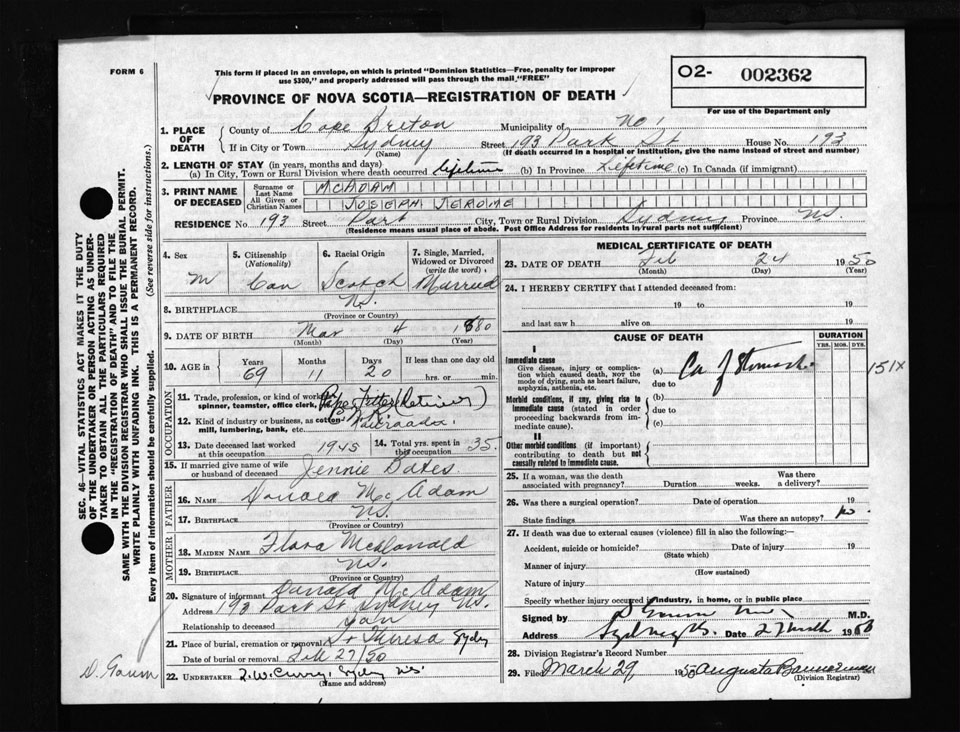 FORM 6
This form if placed in an envelope, on which is printed "Dominion Statistics—Free, penalty for improper
use $300," and properly addressed will pass through the mail "FREE"
O2- 002362
For use of the Department only
PROVINCE OF NOVA SCOTIA—REGISTRATION OF DEATH
1. PLACE OF DEATH
County of Cape Breton Municipality of
If in City or Town Sydney Street 193 Park St House No. 193
(Name) (If death occurred in a hospital or institution, give the name instead of street and number)
2. LENGTH OF STAY (in years, months and days)
(a) In City, Town or Rural Division where death occurred lifetime (b) In Province Lifetime (c) In Canada (if immigrant)
3. PRINT NAME OF DECEASED
Surname or Last Name MCADAM
All Given or Christian Names JOSEPH JEROME
RESIDENCE No. 193 Street Park City, Town or Rural Division Sydney Province N.S.
(Residence means usual place of abode. Post Office Address for residents in rural parts not sufficient)
4. Sex M
5. Citizenship (Nationality) Can
6. Racial Origin Scotch
7. Single, Married, Widowed or Divorced (write the word) Married
8. BIRTHPLACE N.S.
(Province or Country)
9. DATE OF BIRTH Mar 4 1880
(Month) (Day) (Year)
10. AGE in Years 69 Months 11 Days 20 If less than one day old hrs. or min.
OCCUPATION
11. Trade, profession, or kind of work
spinner, teamster, office clerk, Pipe Fitter (Retired)
12. Kind of industry or business, as cotton
mill, lumbering, bank, etc.
13. Date deceased last worked at this occupation 1945
14. Total yrs. spent in this occupation 35
15. If married give name of wife or husband of deceased Jennie Bates
FATHER
16. NAME Donald McAdam
17. BIRTHPLACE N.S.
(Province or Country)
MOTHER
18. MAIDEN NAME Flora McDonald
19. BIRTHPLACE N.S.
(Province or Country)
20. Signature of informant Donald McAdam
Address 193 Park St Sydney N.S.
Relationship to deceased
21. Place of burial, cremation or removal St Theresa Sydney
Date of burial or removal Feb 27/50
22. UNDERTAKER Curry, Sydney N.S.
(Name and address)
MEDICAL CERTIFICATE OF DEATH
23. DATE OF DEATH Feb 24 1950
(Month) (Day) (Year)
24. I HEREBY CERTIFY that I attended deceased from:
19 to 19
and last saw h alive on 19
CAUSE OF DEATH
DURATION
YRS. MOS. DYS.
I
Immediate cause
Give disease, injury or complication which caused death, not the mode of dying, such as heart failure, asphyxia, asthenia, etc.
(a) Ca of Stomach 151X
due to
Morbid conditions, if any, giving rise to immediate cause (stated in order proceeding backwards from immediate cause).
(b)
due to
(c)
II
Other morbid conditions (if important) contributing to death but not causally related to immediate cause.
25. If a woman, was the death associated with pregnancy? Duration weeks. Was there a delivery?
26. Was there a surgical operation? Date of operation 19
State findings Was there an autopsy? no
27. If death was due to external causes (violence) fill in also the following:—
Accident, suicide or homicide? Date of injury 19
(State which)
Manner of injury
(How sustained)
Nature of injury
Specify whether injury occurred in industry, in home, or in public place
Signed by M.D.
Address Sydney N.S. Date 27 19
28. Division Registrar's Record Number
29. Filed March 29, 1950 Augusta Bannerman
(Division Registrar)
SEC. 46—VITAL STATISTICS ACT MAKES IT THE DUTY
OF THE UNDERTAKER OR PERSON ACTING AS UNDER-
TAKER TO OBTAIN ALL THE PARTICULARS REQUIRED
IN THE "REGISTRATION OF DEATH" AND TO FILE THE
SAME WITH THE DIVISION REGISTRAR WHO SHALL ISSUE THE BURIAL PERMIT.
WRITE PLAINLY WITH UNFADING INK. THIS IS A PERMANENT RECORD.
Every item of information should be carefully supplied. (See reverse side for instructions.)